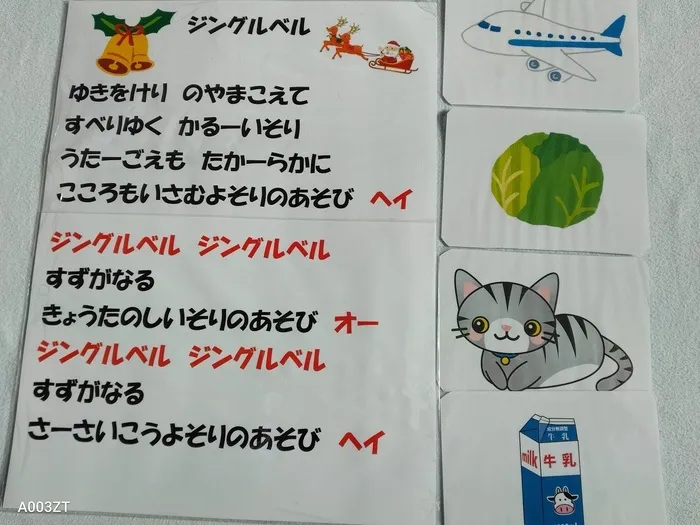 ジングルベル
ゆきをけり のやまこえて
すべりゆく かるーいそり
うたーごえも たかーらかに
こころもいさむよそりのあそび ヘイ
ジングルベル ジングルベル
すずがなる
きょうたのしいそりのあそび オー
ジングルベル ジングルベル
すずがなる
さーさいこうよそりのあそび ヘイ
牛 乳
milk 牛乳
A003ZT